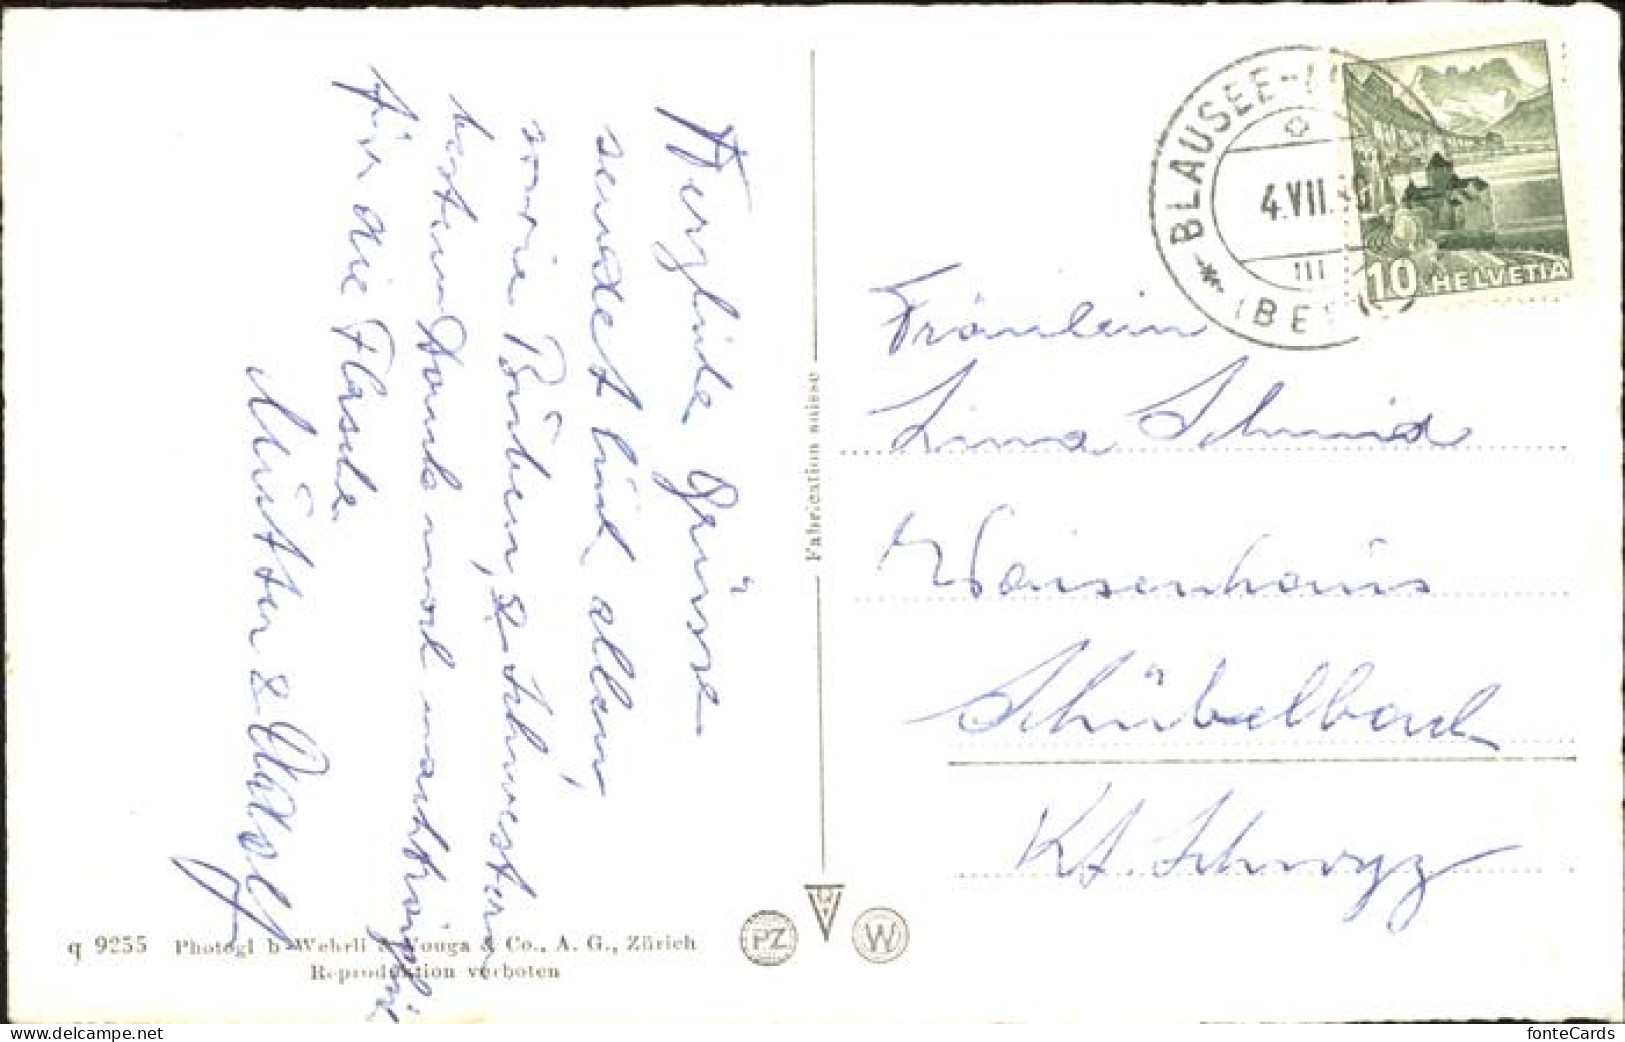 Herzliche Grüsse
sendet Euch allen,
sowie Buben, & Schwestern
besten Dank noch nachträglich
für die Flasche
Mutter & Adolf
Fräulein
Lina Schmid
Waisenhaus
Schübelbach
Kt. Schwyz
BLAUSEE-
4.VII.
III
(BE
10 HELVETIA
Fabrication suisse
PZ
W
q 9255 Photogl b. Wehrli & Vouga & Co., A. G., Zürich
Reproduktion verboten
www.delcampe.net
fonteCards